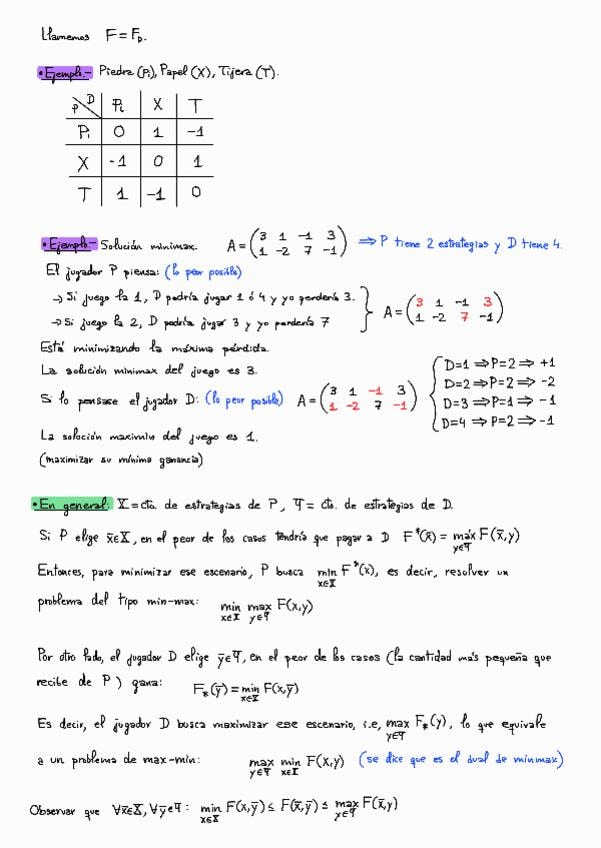 Llamemos F = F_D.
• Ejemplo.- Piedra (Pi), Papel (X), Tijera (T).
P \ D | Pi | X | T
Pi | 0 | 1 | -1
X | -1 | 0 | 1
T | 1 | -1 | 0
• Ejemplo.- Solución minimax. A = (3 1 -1 3 / 1 -2 7 -1) ⇒ P tiene 2 estrategias y D tiene 4.
El jugador P piensa: (lo peor posible)
→ Si juego la 1, D podría jugar 1 ó 4 y yo perdería 3.
→ Si juego la 2, D podría jugar 3 y yo perdería 7
} A = (3 1 -1 3 / 1 -2 7 -1)
Está minimizando la máxima pérdida.
La solución minimax del juego es 3.
Si lo pensase el jugador D: (lo peor posible) A = (3 1 -1 3 / 1 -2 7 -1)
{ D=1 ⇒ P=2 ⇒ +1
D=2 ⇒ P=2 ⇒ -2
D=3 ⇒ P=1 ⇒ -1
D=4 ⇒ P=2 ⇒ -1
La solución maximin del juego es 1.
(maximizar su mínima ganancia)
• En general: X = cto. de estrategias de P, Y = cto. de estrategias de D.
Si P elige x̄∈X, en el peor de los casos tendría que pagar a D F*(x̄) = máx_{y∈Y} F(x̄,y)
Entonces, para minimizar ese escenario, P busca min_{x∈X} F*(x), es decir, resolver un
problema del tipo min-max: min_{x∈X} max_{y∈Y} F(x,y)
Por otro lado, el jugador D elige ȳ∈Y, en el peor de los casos (la cantidad más pequeña que
recibe de P) gana: F_*(ȳ) = min_{x∈X} F(x,ȳ)
Es decir, el jugador D busca maximizar ese escenario, i.e, max_{y∈Y} F_*(y), lo que equivale
a un problema de max-min: max_{y∈Y} min_{x∈X} F(x,y) (se dice que es el dual de minmax)
Observar que ∀x̄∈X, ∀ȳ∈Y: min_{x∈X} F(x,ȳ) ≤ F(x̄,ȳ) ≤ max_{y∈Y} F(x̄,y)